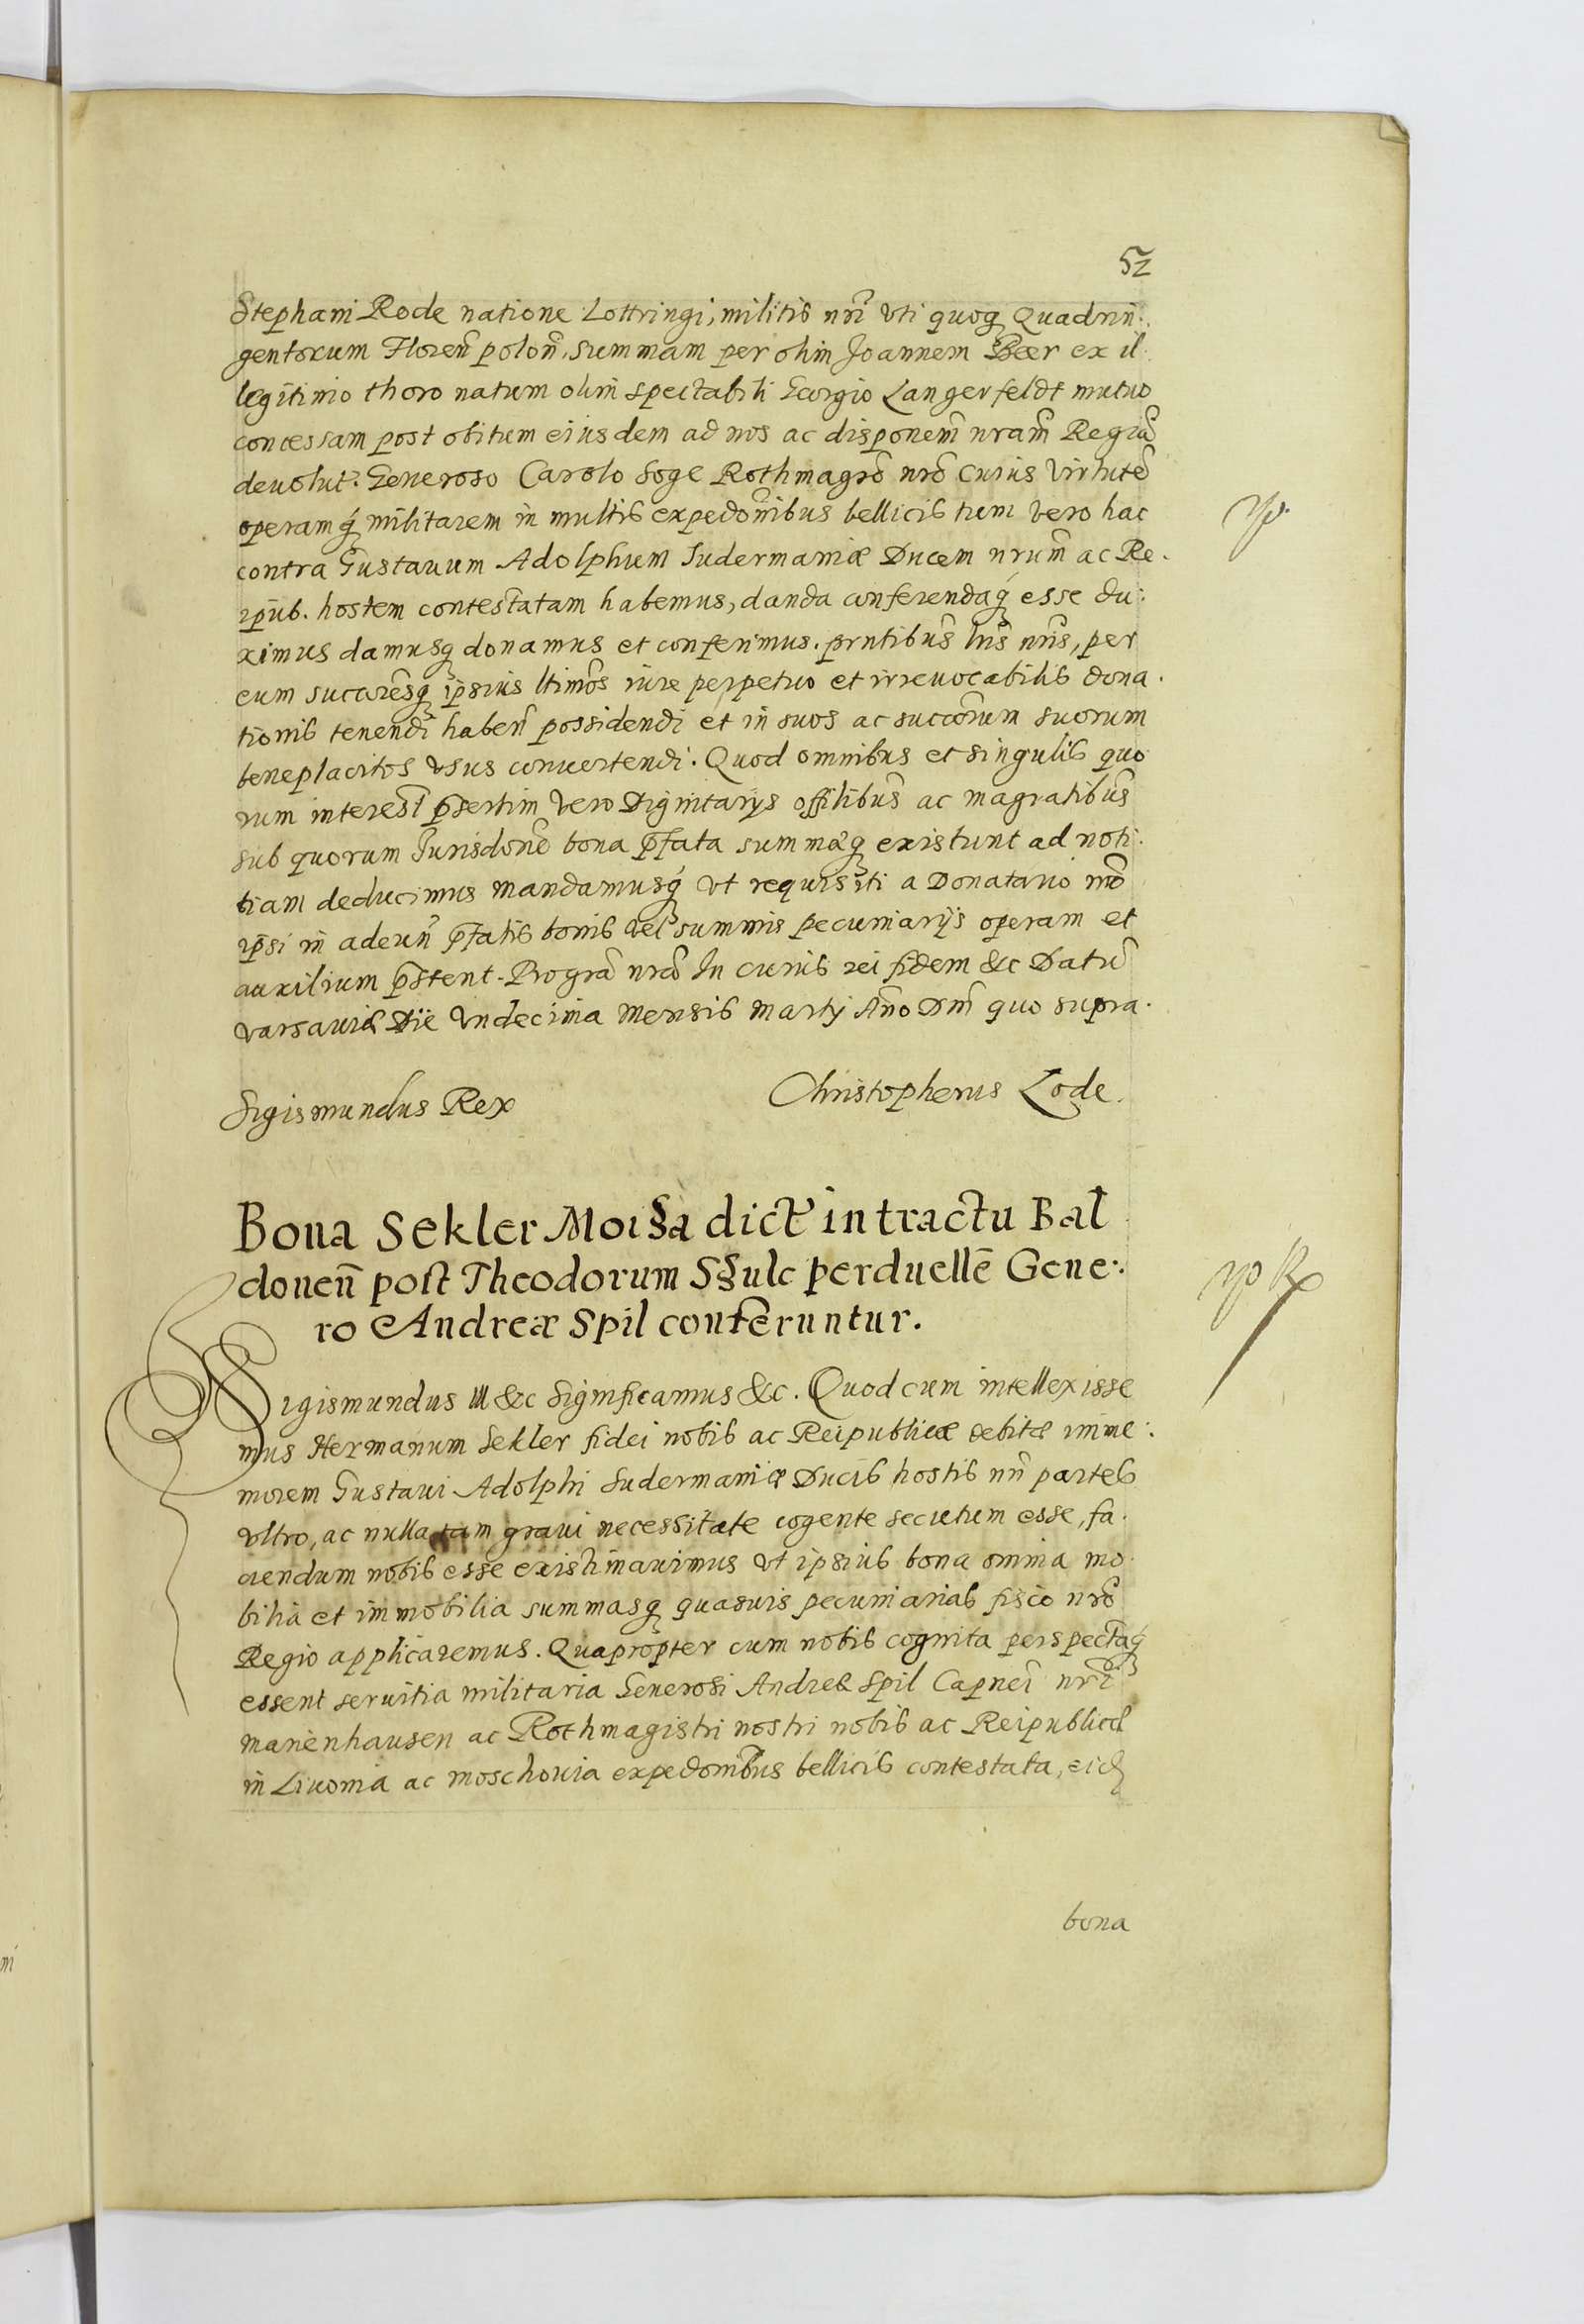 52
Stephani Rode natione Lottringi, militis nri vti quoq Quadrin:
gentorum Floren polon, summam per olim Joannem Beer ex il:
legitimo thoro natum olim spectabili Georgio Langerfeldt mutuo
concessam post obitum eiusdem ad nos ac disponem nram Regiã
deuolut: Generoso Carolo Soge Rothmagrõ nrõ cuius virtutẽ
operamq militarem in multis expedonibus bellicis tum vero hac
contra Gustauum Adolphum Sudermaniæ Ducem nrum ac Re:
ipub. hostem contestatam habemus, danda conferendaq esse du:
ximus damusq donamus et conferimus. prntibus lris nris, per
eum succoresq ipsius ltimos iure perpetuo et irreuocabilis dona:
tionis tenendi haben possidendi et in suos ac succorum suorum
beneplacitos vsus conuertendi. Quod omnibus et singulis quo
rum interest psertim vero Dignitarijs offilibus ac magratibus
sub quorum Jurisdone bona pfata summæq existunt ad noti:
tiam deducimus mandamusq vt requisiti a Donatario mõ
ipsi in adeun pfatis bonis vel summis pecuniarijs operam et
auxilium pstent. Pro gra nra In cuius rei fidem &c Datũ
varsauiæ Die vndecima Mensis Martij Año Dni quo supra.
Sigismundus Rex
Christopherus Lode.
Bona Sekler Moisa dict in tractu Bal
douen post Theodorum S§ulc perduellẽ Gene:
ro Andreæ Spil conferuntur.
Sigismundus III &c Significamus &c. Quod cum intellexisse
mus Hermanum Sekler fidei nobis ac Reipublicæ debitæ imme:
morem Gustaui Adolphi Sudermaniæ Ducis hostis nri partes
vltro, ac nulla tam graui necessitate cogente secutum esse, fa:
ciendum nobis esse existimauimus vt ipsius bona omnia mo
bilia et immobilia summasq quasuis pecuniarias fisco nrõ
Regio applicaremus. Quapropter cum nobis cognita perspectaq
essent seruitia militaria Generosi Andreæ Spil Capnei nri
marienhausen ac Rothmagistri nostri nobis ac Reipublicæ
in Liuonia ac moschouia expedonibus bellicis contestata, eid
bona